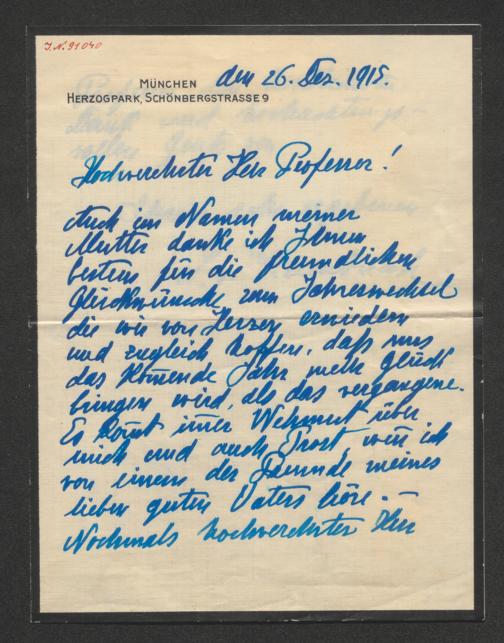 J.N. 91040
MÜNCHEN den 26. Dez. 1915.
HERZOGPARK, SCHÖNBERGSTRASSE 9
Hochverehrter Herr Professor!
Auch im Namen meiner
Mutter danke ich Ihnen
bestens für die freundlichen
Glückwünsche zum Jahreswechsel
die wir von Herzen erwiedern
und zugleich hoffen, daß uns
das kommende Jahr mehr Glück
bringen wird, als das vergangene.
Es kommt immer Wehmut über
mich und auch Trost, wenn ich
von einem der Freunde meines
lieben guten Vaters höre. –
Nochmals hochverehrter Herr